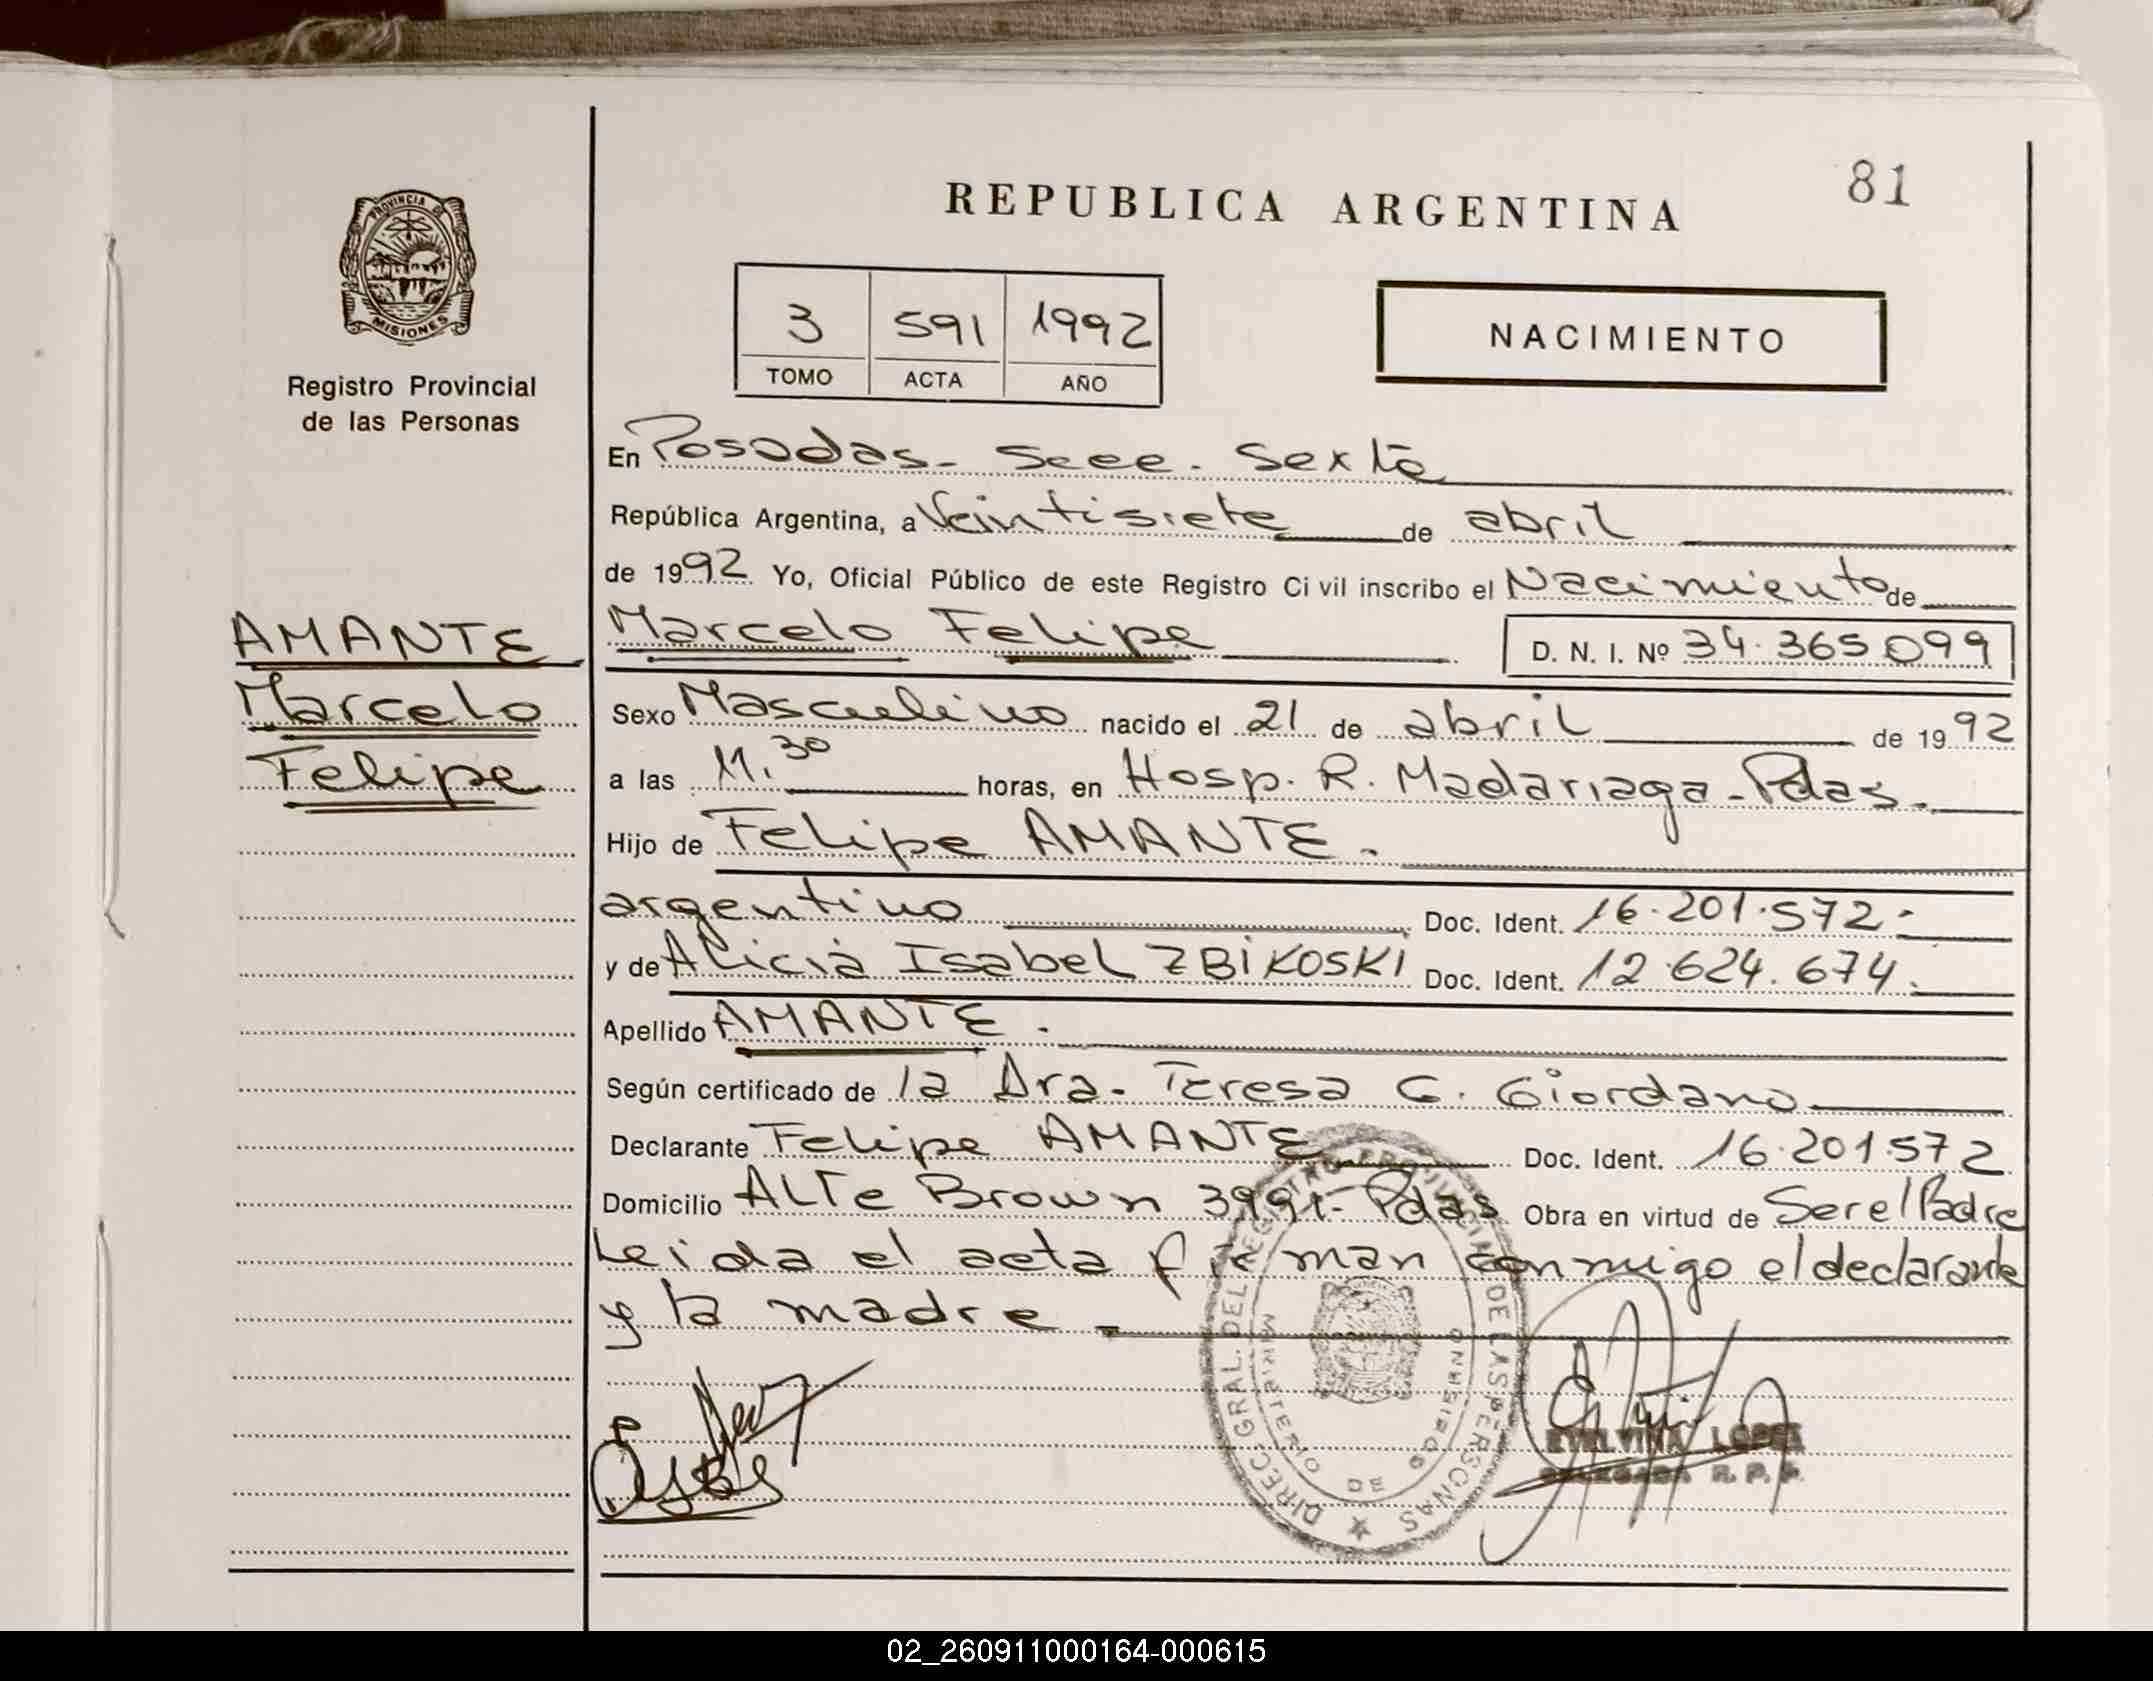 81
REPUBLICA ARGENTINA
PROVINCIA DE
MISIONES
3 591 1992
TOMO ACTA AÑO
NACIMIENTO
Registro Provincial
de las Personas
En Posadas - Secc. Sexta
República Argentina, a Veintisiete de abril
de 1992 Yo, Oficial Público de este Registro Ci vil inscribo el Nacimiento de
AMANTE
Marcelo
Felipe
Marcelo Felipe D. N. I. Nº 34.365099
Sexo Masculino nacido el 21 de abril de 1992
a las 11.30 horas, en Hosp. R. Madariaga - Pdas.
Hijo de Felipe AMANTE.
argentino Doc. Ident. 16.201.572.-
y de Alicia Isabel ZBiKOSKI Doc. Ident. 12.624.674.
Apellido AMANTE.
Según certificado de la Dra. Teresa G. Giordano
Declarante Felipe AMANTE Doc. Ident. 16.201.572
Domicilio ALTe Brown 3991- Pdas Obra en virtud de Ser el Padre
Leida el acta firman conmigo el declarante
y la madre
DIREC. GRAL. DEL REGISTRO PROVINCIAL DE LAS PERSONAS
MINISTERIO DE GOBIERNO
ETELVINA LOPEZ
DELEGADA R. P. P.
02_260911000164-000615